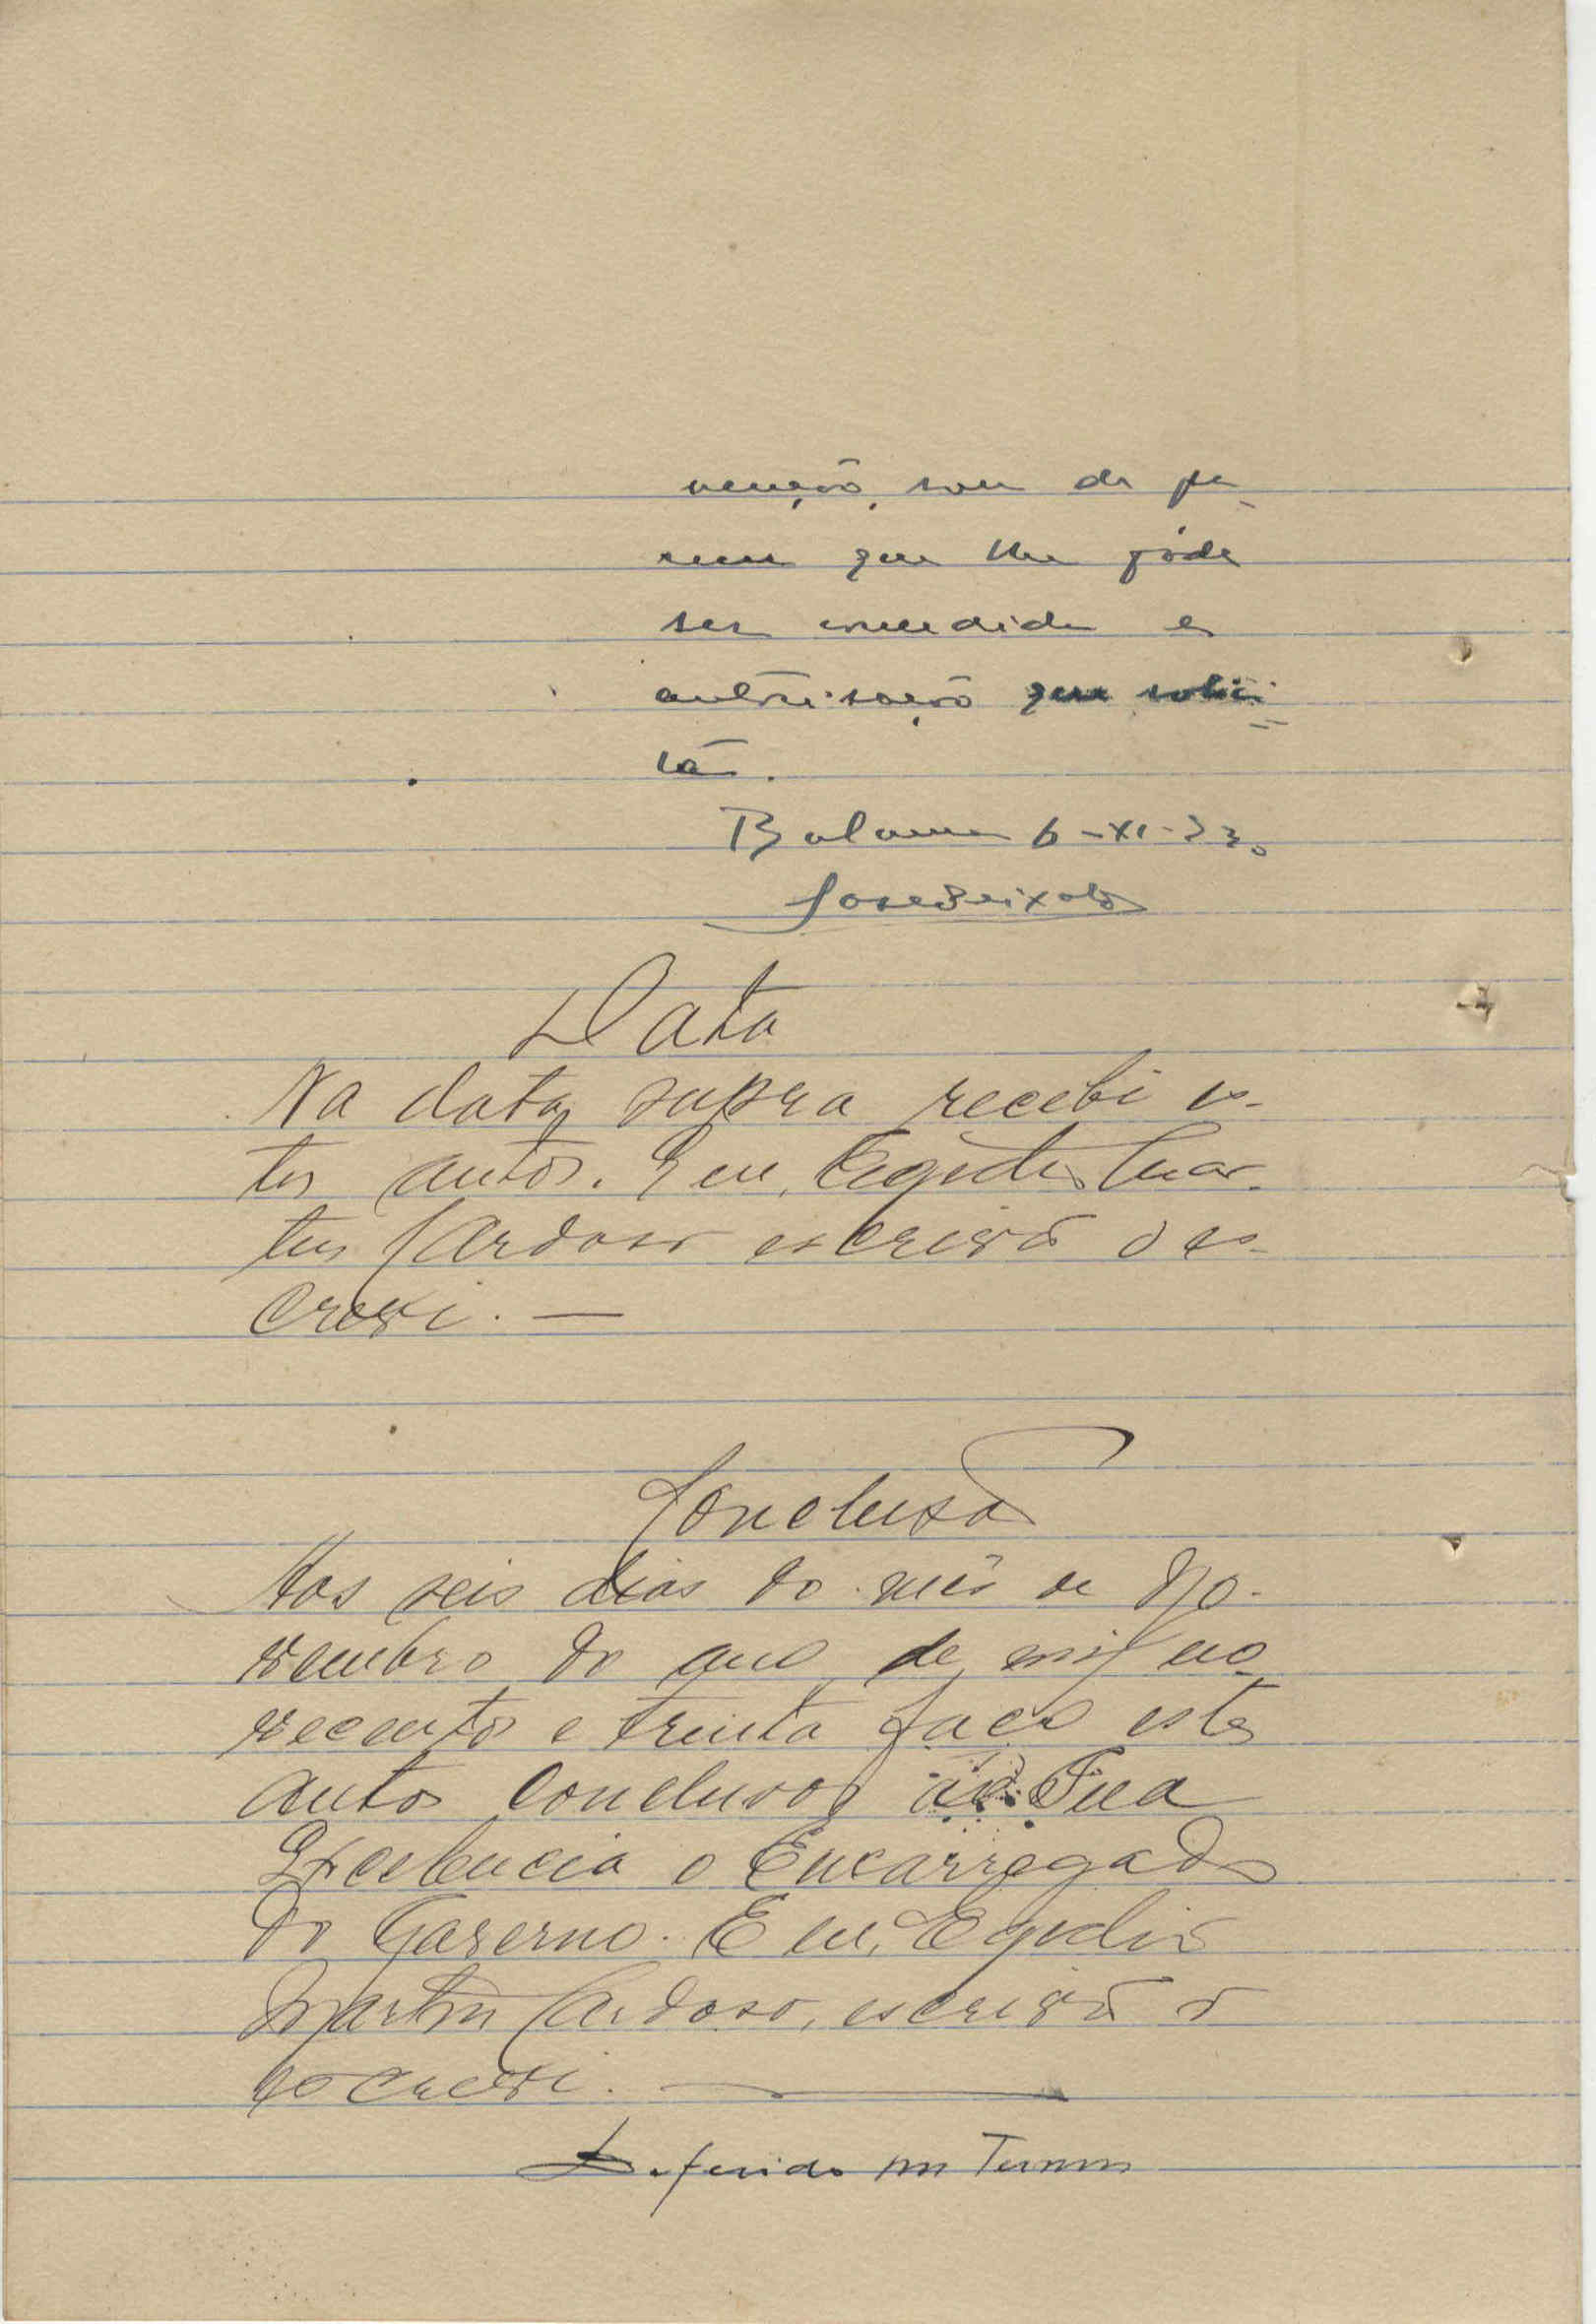 venção, sou de pa-
recer que lhe póde
ser concedida a
autorisação que solici-
ta.
Bolama 6-XI-930
José Peixoto
Data
Na data supra recebi es-
tes autos. E eu, Egidio Mar-
tins Cardoso escrivão o es-
crevi. —
Conclusão
Aos seis dias do mês de No-
vembro do ano de mil no-
vecentos e trinta faço estes
autos conclusos a Sua
Excelencia o Encarregado
do Governo. E eu, Egidio
Martins Cardoso, escrivão o
escrevi. —
Deferido nos Termos